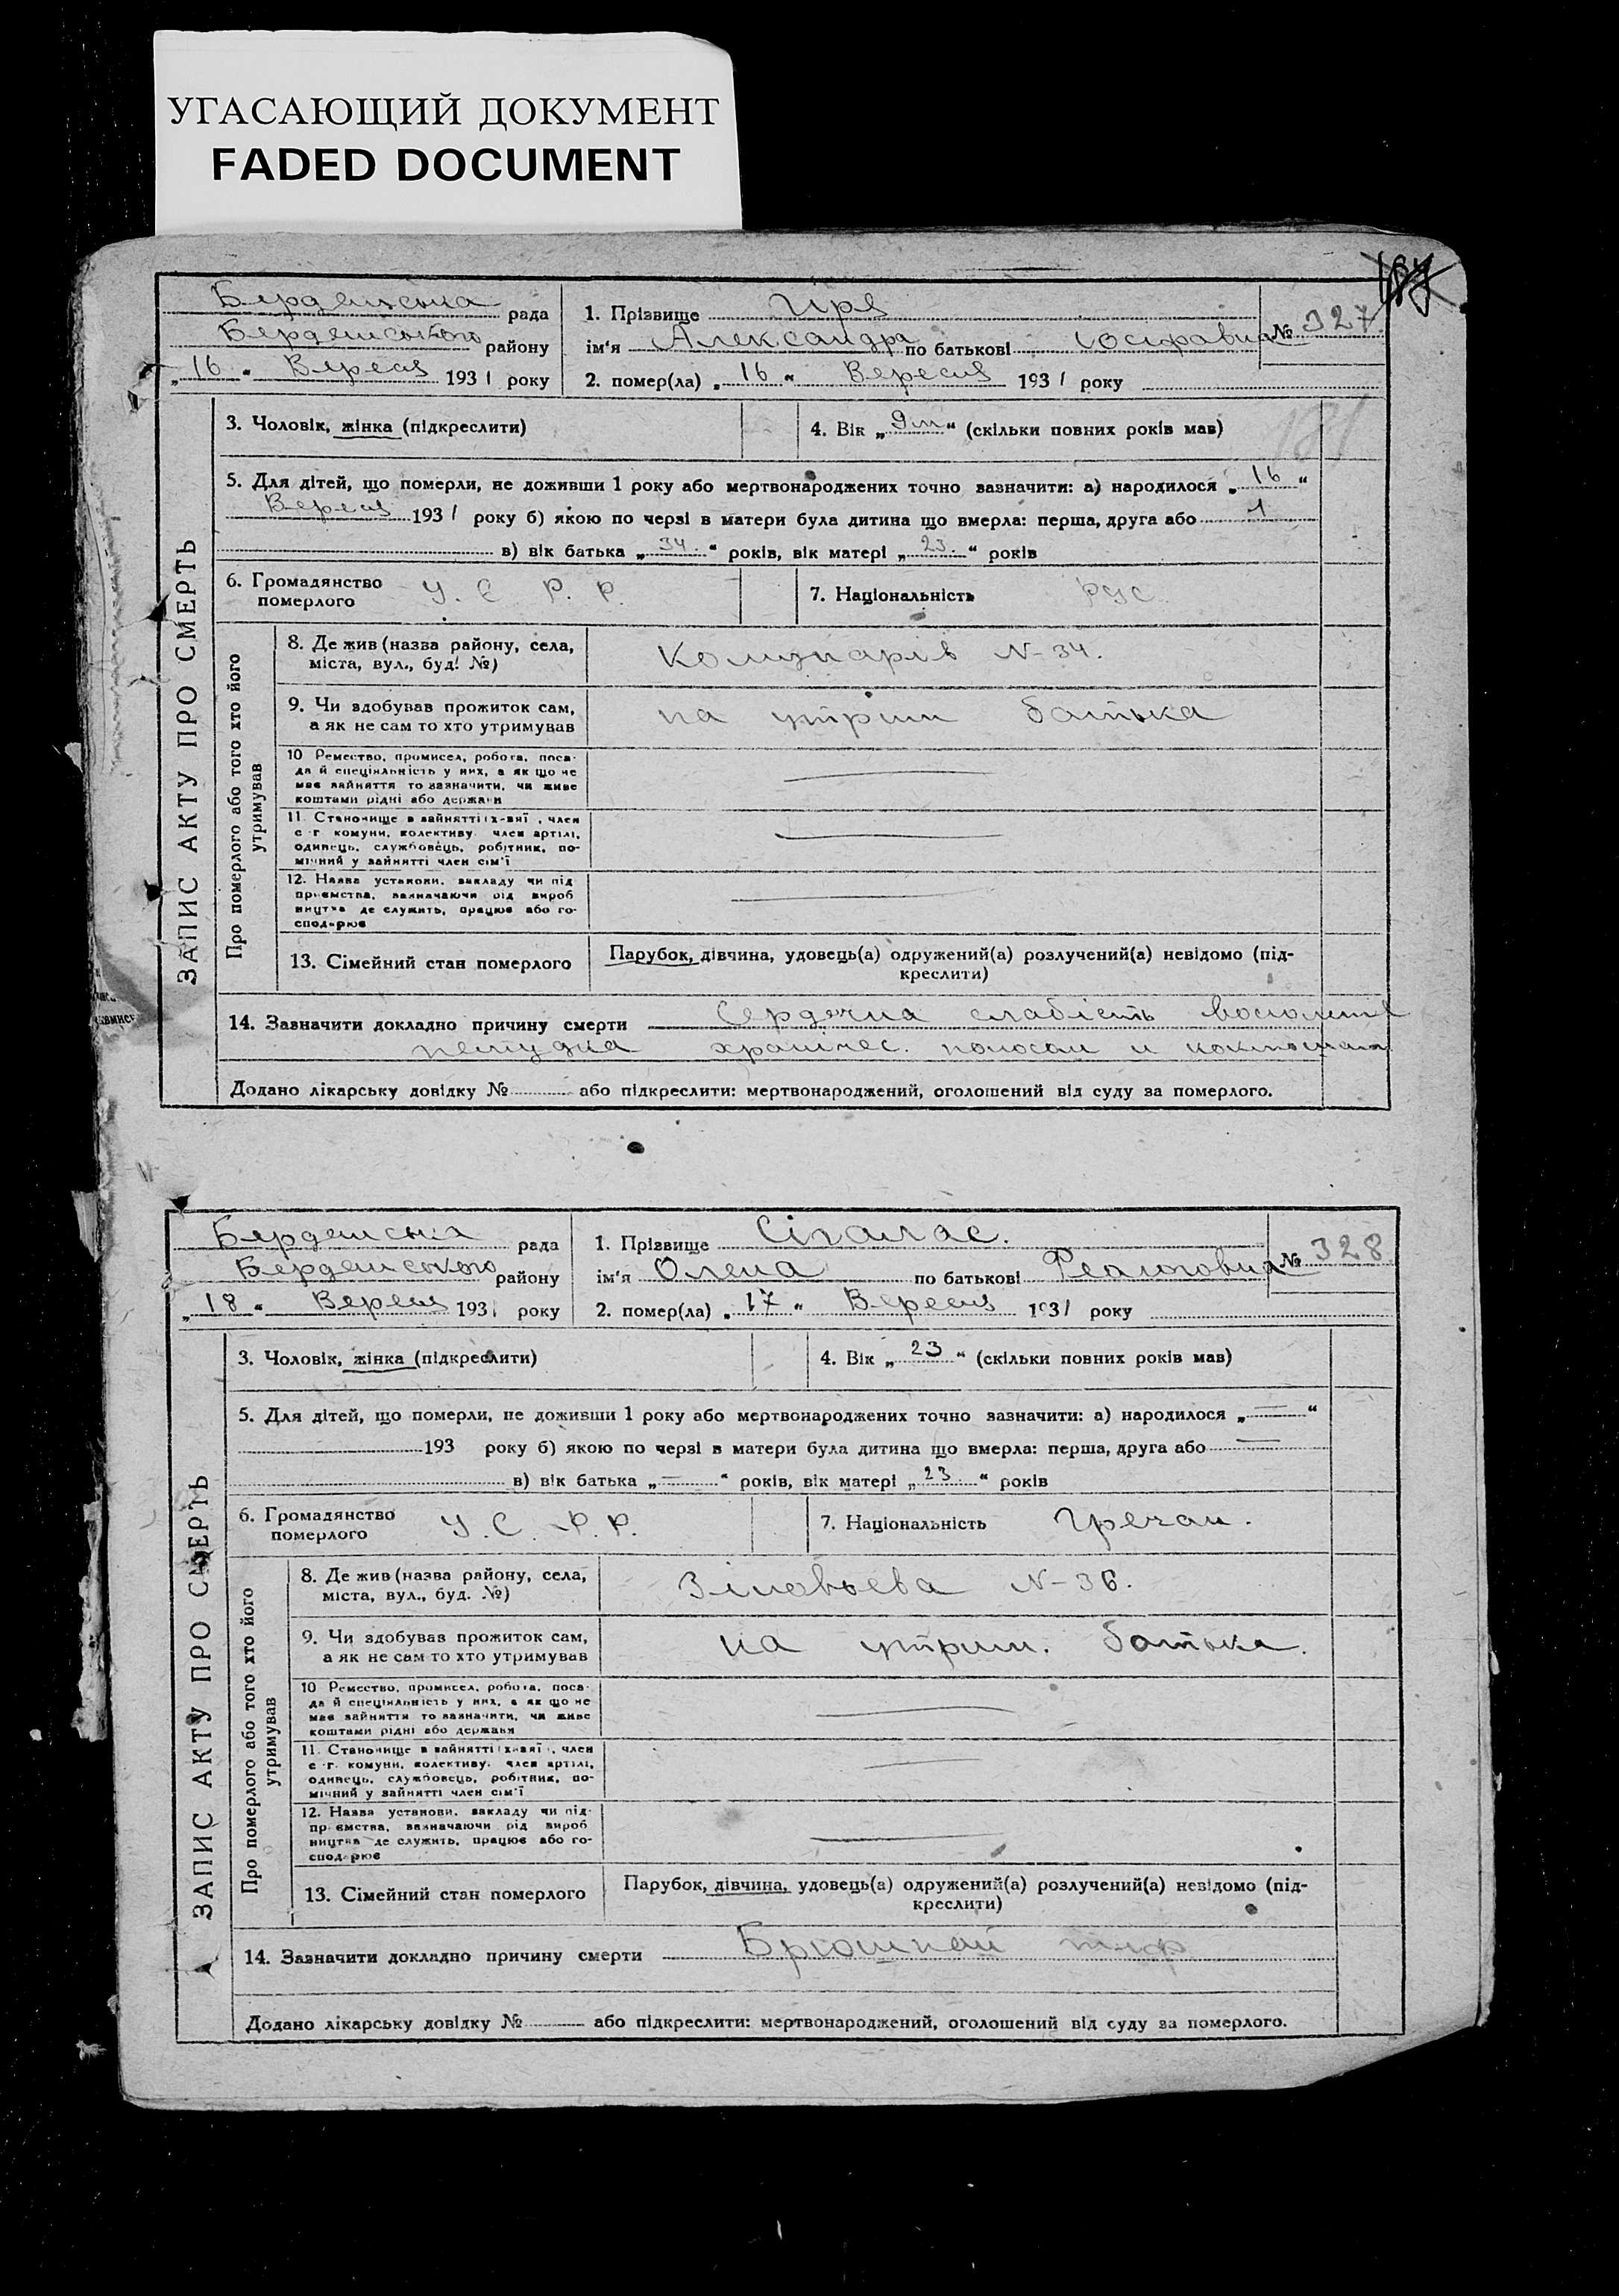 УГАСАЮЩИЙ ДОКУМЕНТ
FADED DOCUMENT
ЗАПИС АКТУ ПРО СМЕРТЬ
Бердянська рада
Бердянського району
„16“ Вересня 1931 року
1. Прізвище Гіря
ім'я Александра по батькові Іосифовна
№ 327
2. помер(ла) „16“ Вересня 1931 року
3. Чоловік, жінка (підкреслити)
4. Вік „9 м“ (скільки повних років мав)
181
5. Для дітей, що померли, не доживши 1 року або мертвонароджених точно зазначити: а) народилося „16“
Вересня 1931 року б) якою по черзі в матери була дитина що вмерла: перша, друга або 1
в) вік батька „34.“ років, вік матері „23.“ років
6. Громадянство померлого У. С. Р. Р.
7. Національність рус.
Про померлого або того хто його утримував
8. Де жив (назва району, села, міста, вул., буд. №) Комунарів N-34.
9. Чи здобував прожиток сам, а як не сам то хто утримував на утрим батька
10 Ремество, промисел, робота, поса-
да й спеціяльність у них, а як що не
має зайняття то зазначити, чи живе
коштами рідні або держави
11. Становище в зайнятті (х-вяї, член
с-г комуни, колективу, член артілі,
одинець, службовець, робітник, по-
мічний у зайнятті член сім'ї
12. Назва установи, закладу чи під
приємства, зазначаючи рід вироб
ництва де служить, працює або го-
сподарює
13. Сімейний стан померлого
Парубок, дівчина, удовець(а) одружений(а) розлучений(а) невідомо (під-
креслити)
14. Зазначити докладно причину смерти Сердечна слабість
хранічес. поносом и
Додано лікарську довідку № або підкреслити: мертвонароджений, оголошений від суду за померлого.
ЗАПИС АКТУ ПРО СМЕРТЬ
Бердянська рада
Бердянського району
„18“ Вересня 1931 року
1. Прізвище Сігалас.
ім'я Олена по батькові
№ 328
2. помер(ла) „17“ Вересня 1931 року
3. Чоловік, жінка (підкреслити)
4. Вік „23“ (скільки повних років мав)
5. Для дітей, що померли, не доживши 1 року або мертвонароджених точно зазначити: а) народилося „—“
193 року б) якою по черзі в матери була дитина що вмерла: перша, друга або —
в) вік батька „—“ років, вік матері „23“ років
6. Громадянство померлого У. С. Р. Р.
7. Національність Гречан.
Про померлого або того хто його утримував
8. Де жив (назва району, села, міста, вул., буд. №) Зіновьева N-36.
9. Чи здобував прожиток сам, а як не сам то хто утримував на утрим. батька.
10 Ремество, промисел, робота, поса-
да й спеціяльність у них, а як що не
має зайняття то зазначити, чи живе
коштами рідні або держави
11. Становище в зайнятті (х-вяї, член
с-г комуни, колективу, член артілі,
одинець, службовець, робітник, по-
мічний у зайнятті член сім'ї
12. Назва установи, закладу чи під-
приємства, зазначаючи рід вироб
ництва де служить, працює або го-
сподарює
13. Сімейний стан померлого
Парубок, дівчина, удовець(а) одружений(а) розлучений(а) невідомо (під-
креслити)
14. Зазначити докладно причину смерти Брюшной тиф
Додано лікарську довідку № або підкреслити: мертвонароджений, оголошений від суду за померлого.